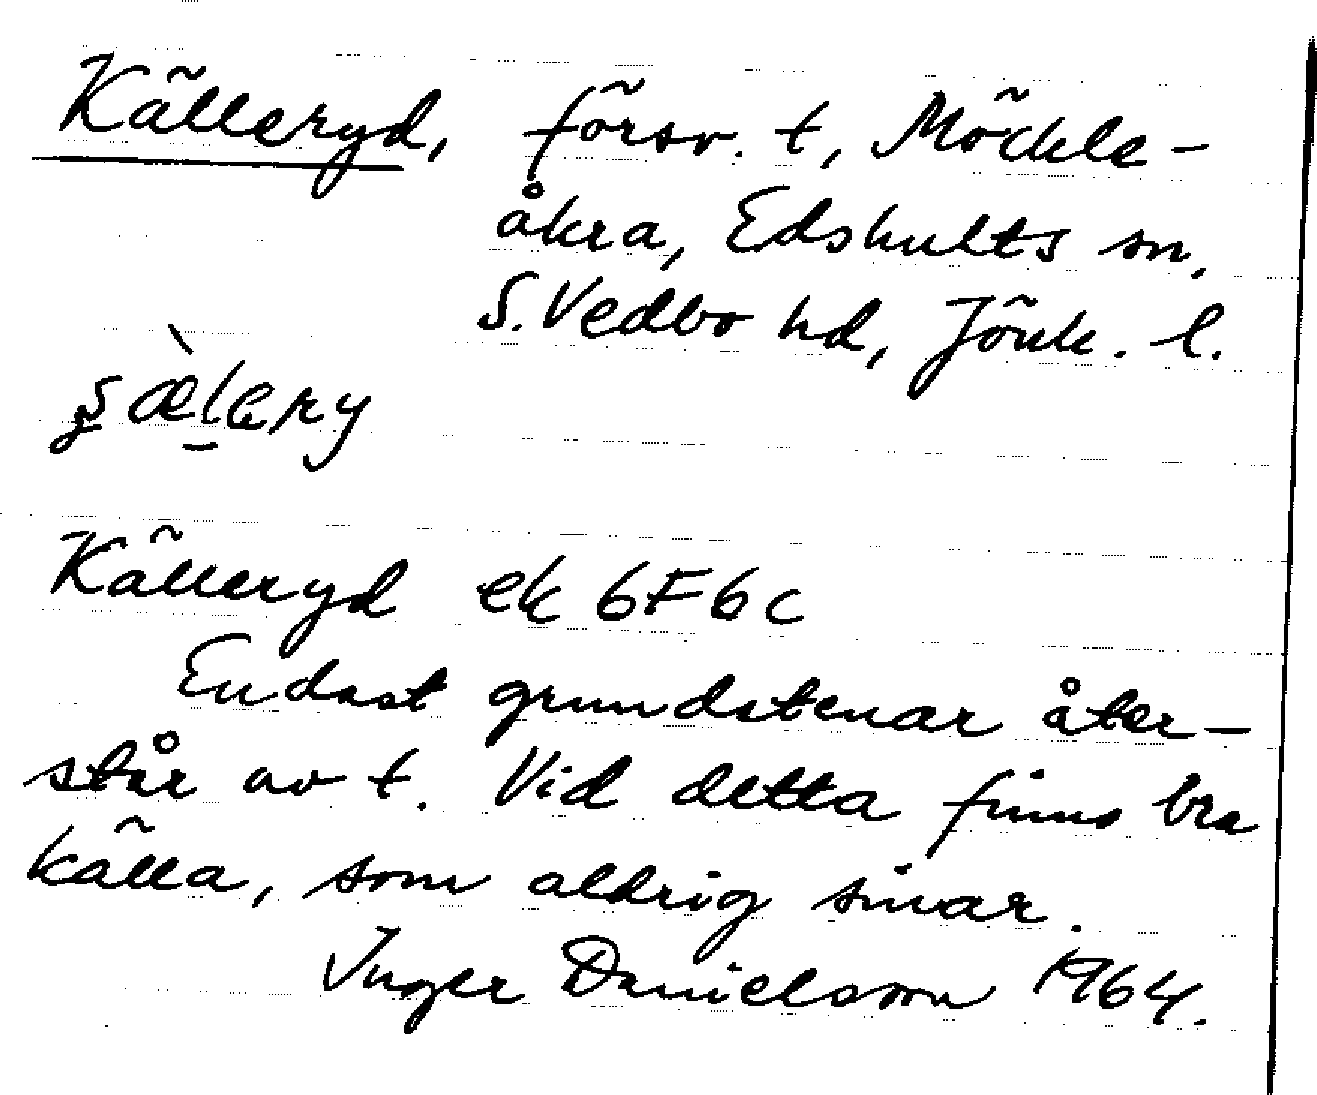 Källeryd, försv. t, Möckle-
åkra, Edshults sn.
S. Vedbo hd, Jönk. l.
Källeryd ek 6F6c
Endast grundstenar åter-
står av t. Vid detta finns bra
källa, som aldrig sinar.
Inger Danielsson 1964.